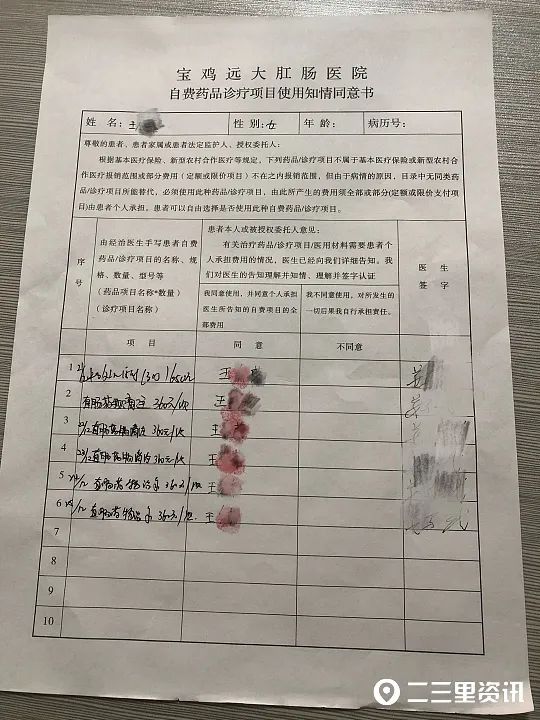 宝鸡远大肛肠医院
自费药品诊疗项目使用知情同意书
姓名:王 性别:女 年龄: 病历号:
尊敬的患者、患者家属或患者法定监护人、授权委托人:
根据基本医疗保险、新型农村合作医疗等规定,下列药品/诊疗项目不属于基本医疗保险或新型农村合作医疗报销范围或部分费用(定额或限价项目)不在之内报销范围,但由于病情的原因,目录中无同类药品/诊疗项目所能替代,必须使用此种药品/诊疗项目,由此所产生的费用须全部或部分(定额或限价支付项目)由患者个人承担,患者可以自由选择是否使用此种自费药品/诊疗项目。
序号
由经治医生手写患者自费药品/诊疗项目的名称、规格、数量、型号等
(药品项目名称*数量)
(诊疗项目名称)
患者本人或被授权委托人意见:
有关治疗药品/诊疗项目/医用材料需要患者个人承担费用的情况,医生已经向我们详细告知。我们对医生的告知理解并知情、理解并签字认证
我同意使用,并同意个人承担医生所告知的自费项目的全部费用
我不同意使用,对所发生的一切后果我自行承担责任。
医生签字
项目 同意 不同意
1 王
2 360元/次 王
3 360元/次 王
4 360元/次 王
5 360元/ 王
6 360元/ 王
7
8
9
10
二三里资讯